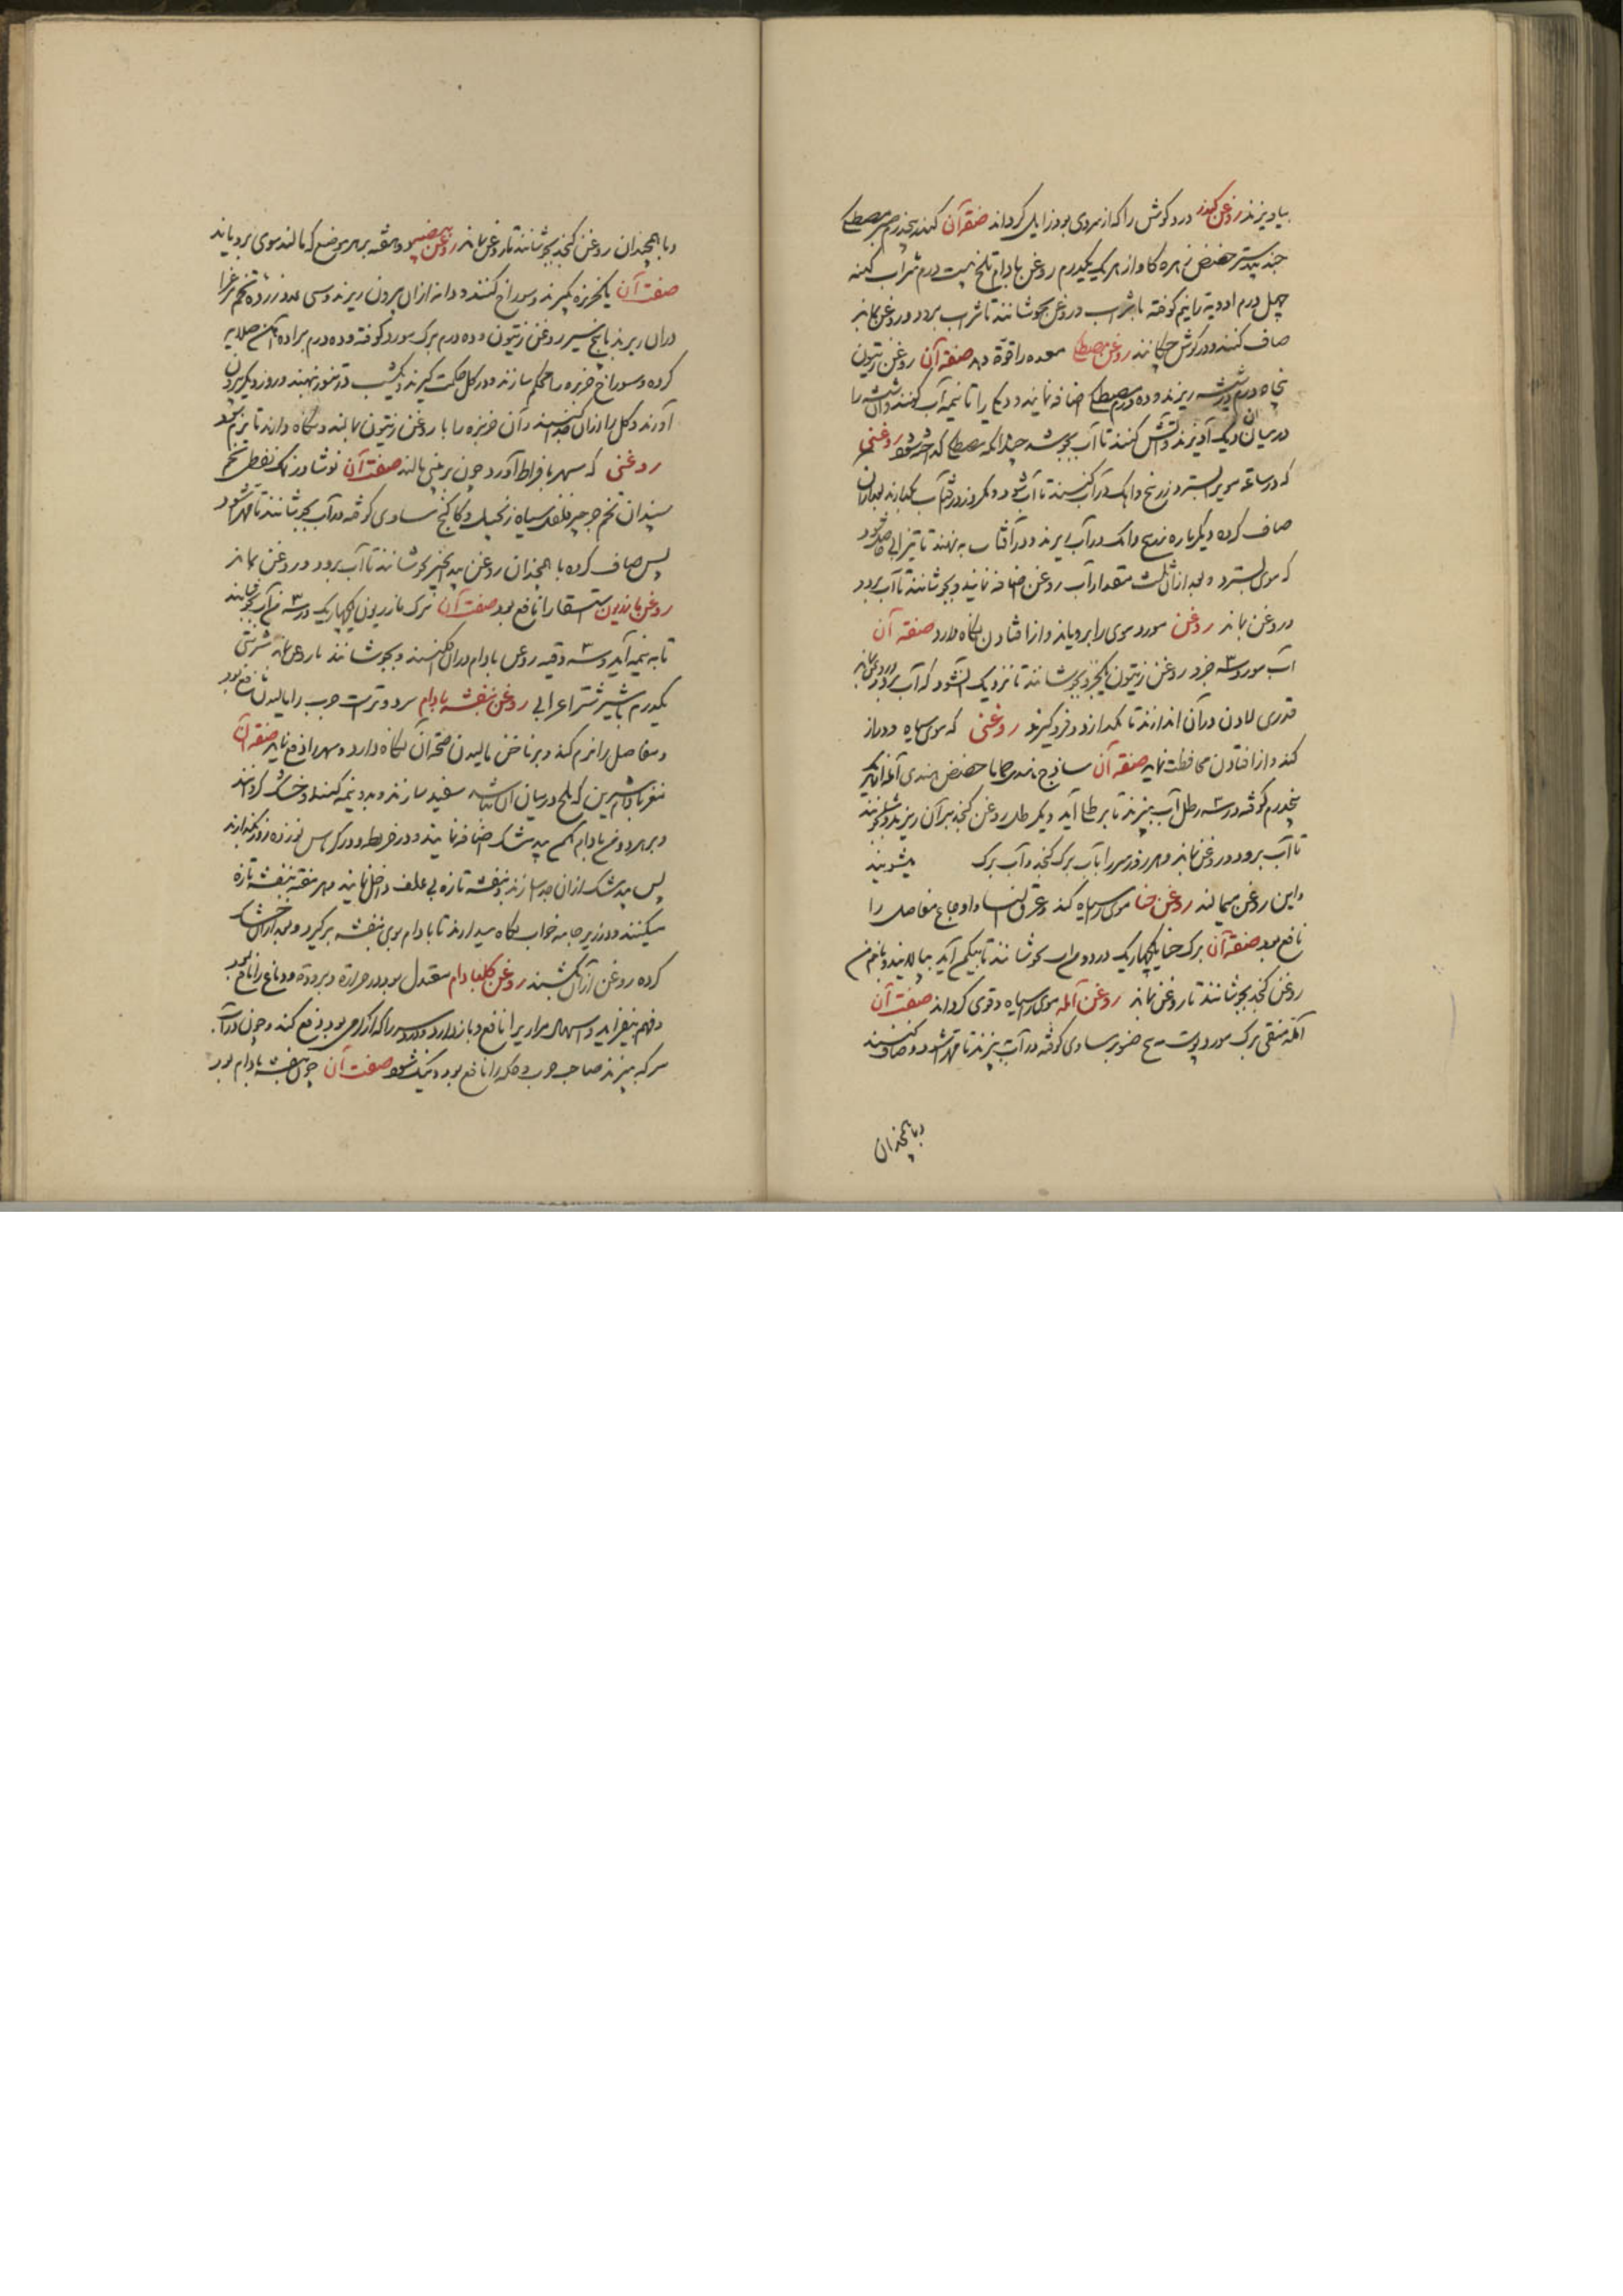 بیاویزند روغن کندر درد گوش را که از سردی بود زایل گرداند صفة آن کندر پنجدرم صبر مصطکی
جندبیدستر حضض زهره گاو از هر یک یکدرم روغن بادام تلخ بیست درم شراب کهنه
چهل درم ادویه را نیم کوفته با شراب و روغن بجوشانند تا شراب برود و روغن بماند
صاف کنند و در گوش چکانند روغن مصطکی معده را قوة دهد صفة آن روغن زیتون
پنجاه درم در شیشه ریزند و ده درم مصطکی اضافه نمایند و دیگ را تا نیمه آب کنند و آن شیشه را
در میان آن دیک آویزند و آتش کنند تا آب بجوشد چندانکه مصطکی گداخته شود روغنی
که در ساعة موی بسترد زرنیخ و اهک در آب کنند تا آب شود و یکروز در آفتاب بگذارند بعد از آن
صاف کرده دیگر باره زرنیخ و اهک در آب ریزند و در آفتاب بنهند تا تیزابی حاصل شود
که موی بسترد و بعد از آن ثلث مقدار آب روغن اضافه نمایند و بجوشانند تا آب برود
و روغن بماند روغن مورد موی را برویاند و از افتادن نگاه دارد صفة آن
آب مورد سه جزو روغن زیتون یکجزو بجوشانند تا نزدیک آن شود که آب برود و روغن بماند
قدری لادن در آن اندازند تا بگدازد و فرو گیرند روغنی که موی سیاه و دراز
کند و از افتادن محافظت نماید صفة آن ساذج هندی حماما حضض هندی آمله از هر یک
پنجدرم کوفته در سه رطل آب بپزند تا برطلی آید و یکرطل روغن کنجد بر آن ریزند و بجوشانند
تا آب برود و روغن بماند و هر روز سر را بآب برگ کنجد و آب برگ میشویند
و این روغن میمالند روغن حنا موی را سیاه کند و عرق النسا و اوجاع مفاصل را
نافع بود صفة آن برک حنا یکچهاریک در دو من آب بجوشانند تا بیکمن آید بپالایند و با نیم من
روغن کنجد بجوشانند تا روغن بماند روغن آمله موی را سیاه و قوی گرداند صفت آن
آمله منقی برک مورد پوست بیخ صنوبر مساوی کوفته در آب بپزند تا مهرا شود و صاف کنند
و با همچندان
و با همچندان روغن کنجد بجوشانند تا روغن بماند روغن بیضه دو هفته بر هر موضع که مالند موی برویاند
صفت آن یکخربزه بگیرند و سوراخ کنند و دانه از آن بیرون ریزند و سی عدد زرده تخم مرغ را
در آن ریزند با پنج سیر روغن زیتون و ده درم برک مورد کوفته و ده درم براده آهن صلایه
کرده و سوراخ خربزه را محکم سازند و در کل حکمت گیرند و یکشب در تنور نهند و روز دیگر بیرون
آورند و کل را از آن جدا کنند و آن خربزه را با روغن زیتون بمالند و نگاه دارند تا نرم شود
روغنی که سهر بافراط آورد چون بر بینی مالند صفت آن نوشادر نمک نفطی تخم
سپندان تخم جرجیر فلفل سیاه زنجبیل و کاکنج مساوی کوفته در آب بجوشانند تا مهرا شود
پس صاف کرده با همچندان روغن بیدانجیر بجوشانند تا آب برود و روغن بماند
روغن مازریون استسقا را نافع بود صفت آن برک مازریون یکچهاریک در سه من آب بجوشانند
تا به نیمه آید و سه وقیه روغن بادام در آن افکنند و بجوشانند تا روغن بماند شربتی
یکدرم با شیر شتر اعرابی روغن بنفشه بادام سرد و تر است جرب را مالیدن نافع بود
و مفاصل را نرم کند و بر ناخن مالیدن صحة آن نگاه دارد و سهر را دفع نماید صفة آن
مغز بادام شیرین که بلخ در میان آن نباشد سفید سازند و بدو نیمه کنند و خشک گردانند
و بر هر دو من بادام یکمن بیدمشک اضافه نمایند و در خریطه و در کرباس نو زده روز بگذارند
پس بیدمشک از آن جدا سازند و بنفشه تازه بی علف داخل نمایند و هر هفته بنفشه تازه
میکنند و در زیر جامه خواب نگاه میدارند تا بادام بوی بنفشه بر گیرد و بعد از آن خشک
کرده روغن از آن کشند روغن گل بادام معتدل بود در حرارة و برودة و دماغ را نافع بود
و فهم بیفزاید و اسهال مراری را نافع و باز دارد و درد سر را که از گرمی بود دفع کند و چون در آب
سرکه بپزند صاحب جرب و حکه را نافع بود و نیک شود صفت آن چون بنفشه بادام بود